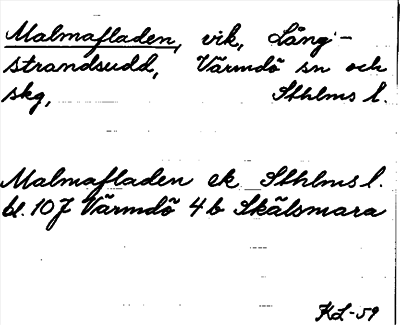 Malmafladen, vik, Lång-
strandsudd, Värmdö sn och
skg, Sthlms l.
Malmafladen ek. Sthlms l.
bl. 107 Värmdö 4 b Skälsmara
KL-59